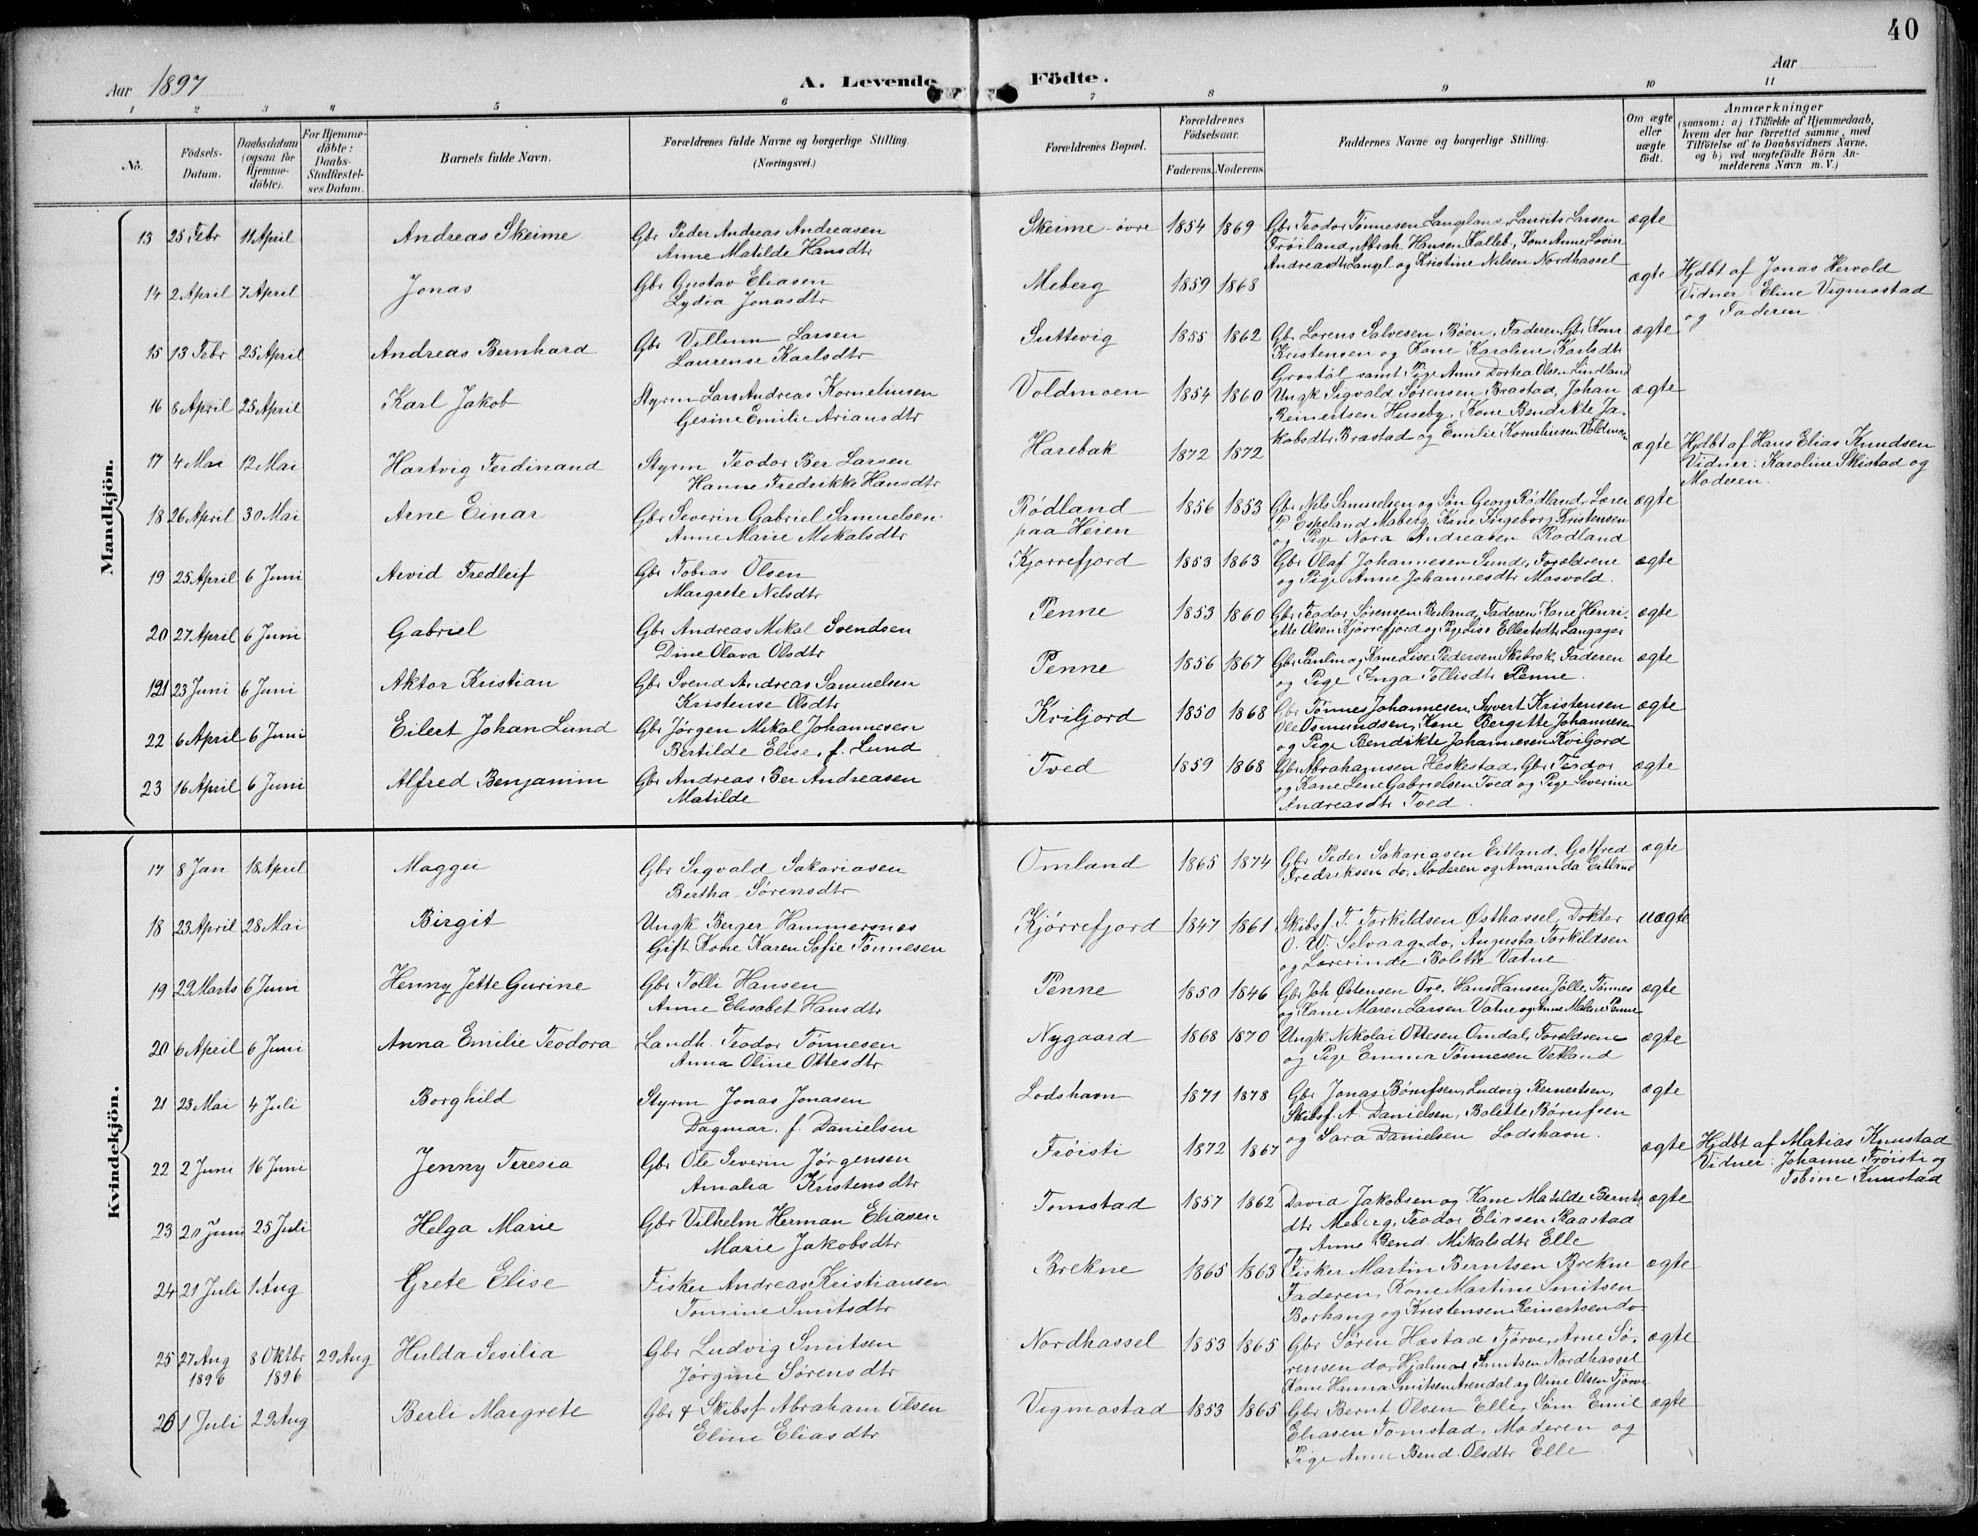 40
Aar 1897
A. Levende Födte.
Aar
1 2 3 4 5 6 7 8 9 10 11
No.
Födsels-Datum.
Daabsdatum (ogsaa for Hjemme-döbte).
For Hjemme-döbte: Daabs-Stadfæstel-ses Datum.
Barnets fulde Navn.
Forældrenes fulde Navne og borgerlige Stilling. (Næringsvei.)
Forældrenes Bopæl.
Forældrenes Födselsaar.
Faderens. Moderens.
Faddernes Navne og borgerlige Stilling.
Om ægte eller uægte födt.
Anmærkninger
(saasom: a) i Tilfælde af Hjemmedaab,
hvem der har forrettet samme, med
Tilföielse af to Daabsvidners Navne,
og b) ved uægtefödte Börn An-
melderens Navn m. V.)
Mandkjön.
13 25 Febr 11 April Andreas Skeime Gbr Peder Andreas Andreasen
Anne Matilde Hansdtr
Skeime-øvre 1854 1869 Gbr Teodor Tønnesen Langeland, Laurits Larsen ægte
Frøiland, Abrah. Hansen Kalleb, Kone Anne Lovise
Andreasdtr Langel og Kristine Nilsen Nordhassel
14 2 April 7 April Jonas Gbr Gustav Eliasen
Lydia Jonasdtr
Meberg 1859 1868 ægte Hjdbt af Jonas Hervold
Vidner: Eline Vigmostad
og Faderen
15 13 Febr 25 April Andreas Bernhard Gbr Villum Larsen
Laurense Karlsdtr
Suttevig 1855 1862 Gbr Lorens Salvesen Bøen, Faderen, Gbr Korn. ægte
Kristensen og Kone Karoline Karlsdtr
Grostøl samt Pige Anne Dortea Olsen Lindland
16 8 April 25 April Karl Jakob Styrm Lars Andreas Korneliusen
Gesine Emilie Ariansdtr
Voldmoen 1854 1860 Ungk Sigvald Sørensen Brastad, Johan ægte
Reinertsen Huseby, Kone Bendikte Ja-
kobsdtr Brastad og Emilie Korneliusen Voldmoen
17 4 Mai 12 Mai Hartvig Ferdinand Styrm Teodor Ber Larsen
Hanne Frederikke Hansdtr
Harebak 1872 1872 ægte Hjdbt af Hans Elias Knudsen
Vidner: Karoline Skistad og
Moderen.
18 26 April 30 Mai Arne Einar Gbr Severin Gabriel Samuelsen
Anne Marie Mikalsdtr
Rødland
paa Heien 1856 1853 Gbr Nils Samuelsen og Søn Georg Rødland, Lærer ægte
P. Espeland Maberg, Kone Ingeborg Kristensen
og Pige Nora Andreasen Rødland
19 25 April 6 Juni Arvid Fredleif Gbr Tobias Olsen
Margrete Nilsdtr
Kjørrefjord 1853 1863 Gbr Olaf Johannesen Sunde, Foreldrene ægte
og Pige Anne Johannesdtr Mosvold.
20 27 April 6 Juni Gabriel Gbr Andreas Mikal Svendsen
Dine Olava Olsdtr
Penne 1853 1860 Gbr Teodor Sørensen Berland, Faderen, Kone Henri- ægte
ette Olsen Kjørrefjord og Pige Lise Ellertsdtr Langager
21 23 Juni 6 Juni Aktor Kristian Gbr Svend Andreas Samuelsen
Kristense Olsdtr
Penne 1856 1867 Gbr Paulin og Kone Lise Pedersen Skibrok, Faderen ægte
og Pige Inga Tollisdtr Penne.
22 6 April 6 Juni Eilert Johan Lund Gbr Jørgen Mikal Johannesen
Bertilde Elise f. Lund
Kviljord 1850 1868 Gbr Tønnes Johannesen, Syvert Kristensen ægte
Ole Osmundsen, Kone Bergitte Johannesen
og Pige Bendikte Johannesen Kviljord
23 16 April 6 Juni Alfred Benjamin Gbr Andreas Ber Andreasen
Matilde
Tved 1859 1868 Gbr Abrahamsen Heskestad, Gbr Teodor ægte
og Kone Lene Gabrielsen Tved og Pige Severine
Andreasdtr Tved.
Kvindekjön.
17 8 Jan 18 April Maggii Gbr Sigvald Sakariasen
Bertha Sørensdtr
Omland 1865 1874 Gbr Peder Sakariasen Eitland, Gotfred ægte
Fredriksen do, Moderen og Amanda Eitland
18 23 April 28 Mai Birgit Ungk Berger Hammersnes
Gift Kone Karen Sofie Tønnesen
Kjørrefjord 1847 1861 Skibsf. T. Torkildsen Østhassel, Doktor uægte
O. W. Selvaag do, Augusta Torkildsen
og Lærerinde Bolette Vatne
19 29 Marts 6 Juni Henny Jette Gurine Gbr Tolli Hansen
Anne Elisabet Hansdtr
Penne 1850 1846 Gbr Joh Østensen Ore, Hans Hansen Jølle, Tønnes ægte
og Kone Maren Larsen Vatne og Anne Malene Penne
20 6 April 6 Juni Anna Emilie Teodora Landh. Teodor Tønnesen
Anna Oline Ottesdtr
Nygaard 1868 1870 Ungk Nikolai Ottesen Omdal, Foreldrene ægte
og Pige Emma Tønnesen Vetland
21 23 Mai 4 Juli Borghild Styrm Jonas Jonasen
Dagmar f. Danielsen
Lodshavn 1871 1878 Gbr Jonas Børufsen, Ludvig Reinertsen, ægte
Skibsf. A. Danielsen, Bolette Børufsen
og Sara Danielsen Lodshavn.
22 2 Juni 16 Juni Jenny Teresia Gbr Ole Severin Jørgensen
Amalia Kristensdtr
Frøisti 1872 1867 ægte Hjdbt af Matias Kunstad
Vidner: Johanne Frøisti og
Tobine Kunstad
23 20 Juni 25 Juli Helga Marie Gbr Vilhelm Herman Eliasen
Marie Jakobsdtr
Tomstad 1857 1862 David Jakobsen og Kone Matilde Bernts- ægte
dtr Meberg, Teodor Eliasen Raastad
og Anne Bend Mikalsdtr Elle
24 21 Juli 1 Aug Grete Elise Fisker Andreas Kristiansen
Tomine Smitsdtr
Brekne 1865 1863 Fisker Martin Berntsen Brekne ægte
Faderen, Kone Martine Smitsen
Borhaug og Kristensen Reinertsen do
25 27 Aug 1896 8 Oktbr 1896 29 Aug Hulda Sesilia Gbr Ludvig Smitsen
Jørgine Sørensdtr
Nordhassel 1853 1865 Gbr Søren Hæstad Tjørve, Arne Sø- ægte
rensen do, Hjalmar Smitsen Nordhassel
Kone Hanna Smitsen Arendal og Oline Olsen Tjørve
26 1 Juli 29 Aug Berli Margrete Gbr & Skibsf Abraham Olsen
Eline Eliasdtr
Vigmostad 1853 1865 Gbr Bernt Olsen Elle, Søn Emil ægte
Eliasen Tomstad, Moderen og
Pige Anne Bend. Olsdtr Elle.